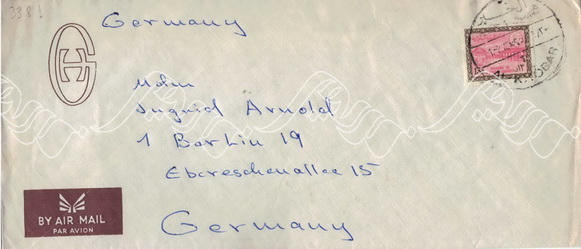 3381
Germany
Mdm
Ingrid Arnold
1 Berlin 19
Ebereschenallee 15
Germany
BY AIR MAIL
PAR AVION
AL-KHOBAR